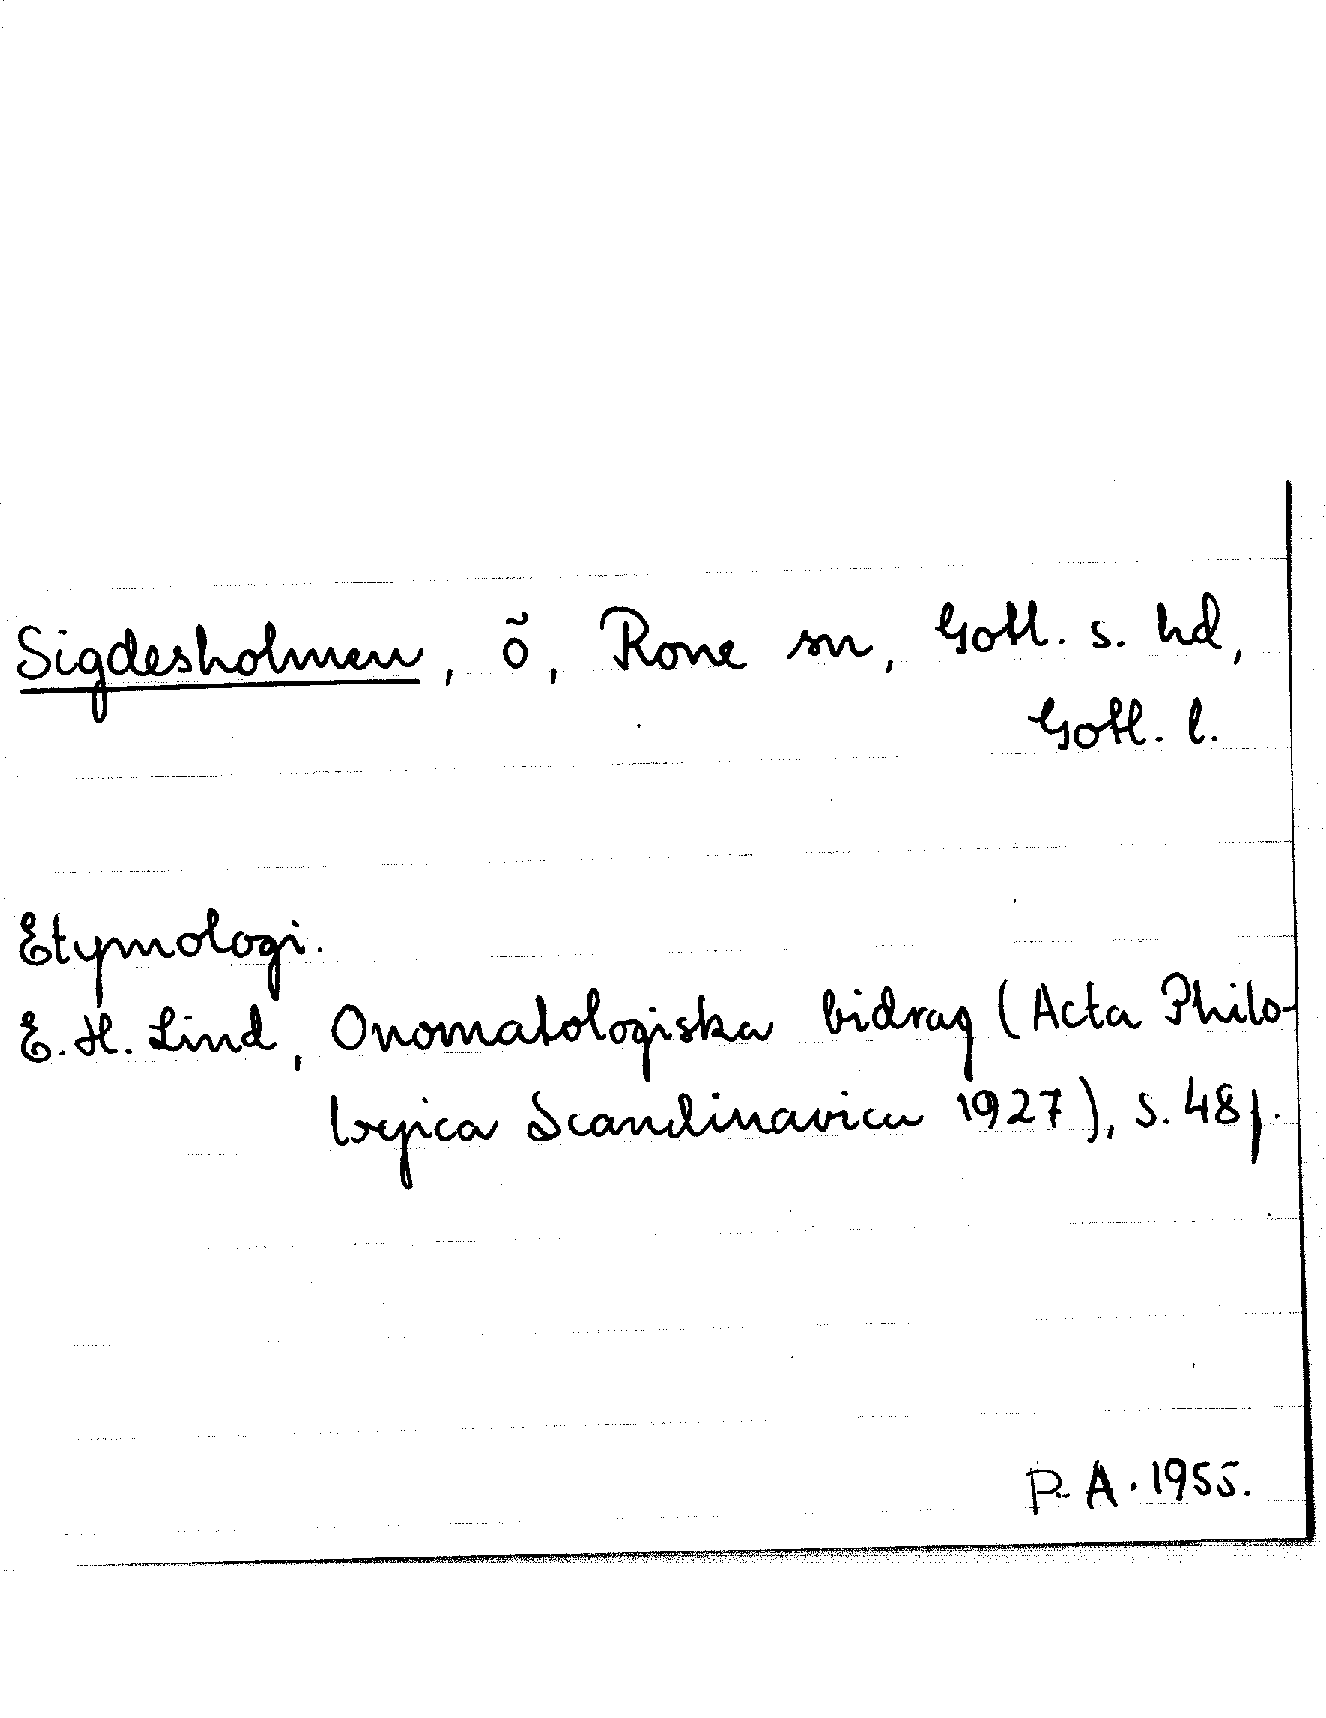 Sigdesholmen, ö, Rone sn, Gotl. s. hd,
Gotl. l.
Etymologi.
E. H. Lind, Onomatologiska bidrag (Acta Philo-
logica Scandinavica 1927), s. 48 f.
P. A. 1955.